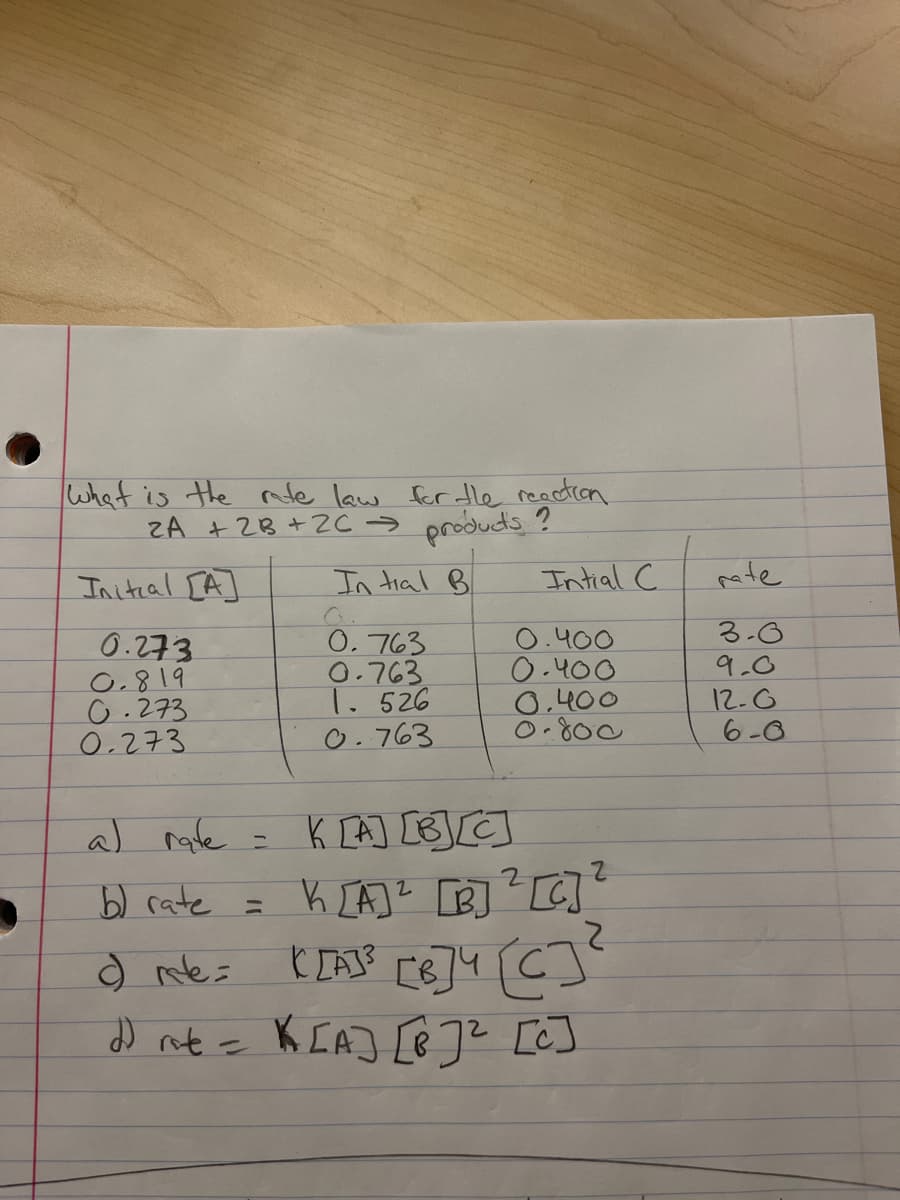 What is the rate law for the reaction
2A + 2B + 2C → products ?
Initial [A] In tial B Intial C rate
0.273 0.763 0.400 3.0
0.819 0.763 0.400 9.0
0.273 1.526 0.400 12.0
0.273 0.763 0.800 6.0
a) rate = K [A] [B] [C]
b) rate = K [A]² [B]² [C]²
c) rate = K [A]³ [B]⁴ [C]²
d) rate = K [A] [B]² [C]